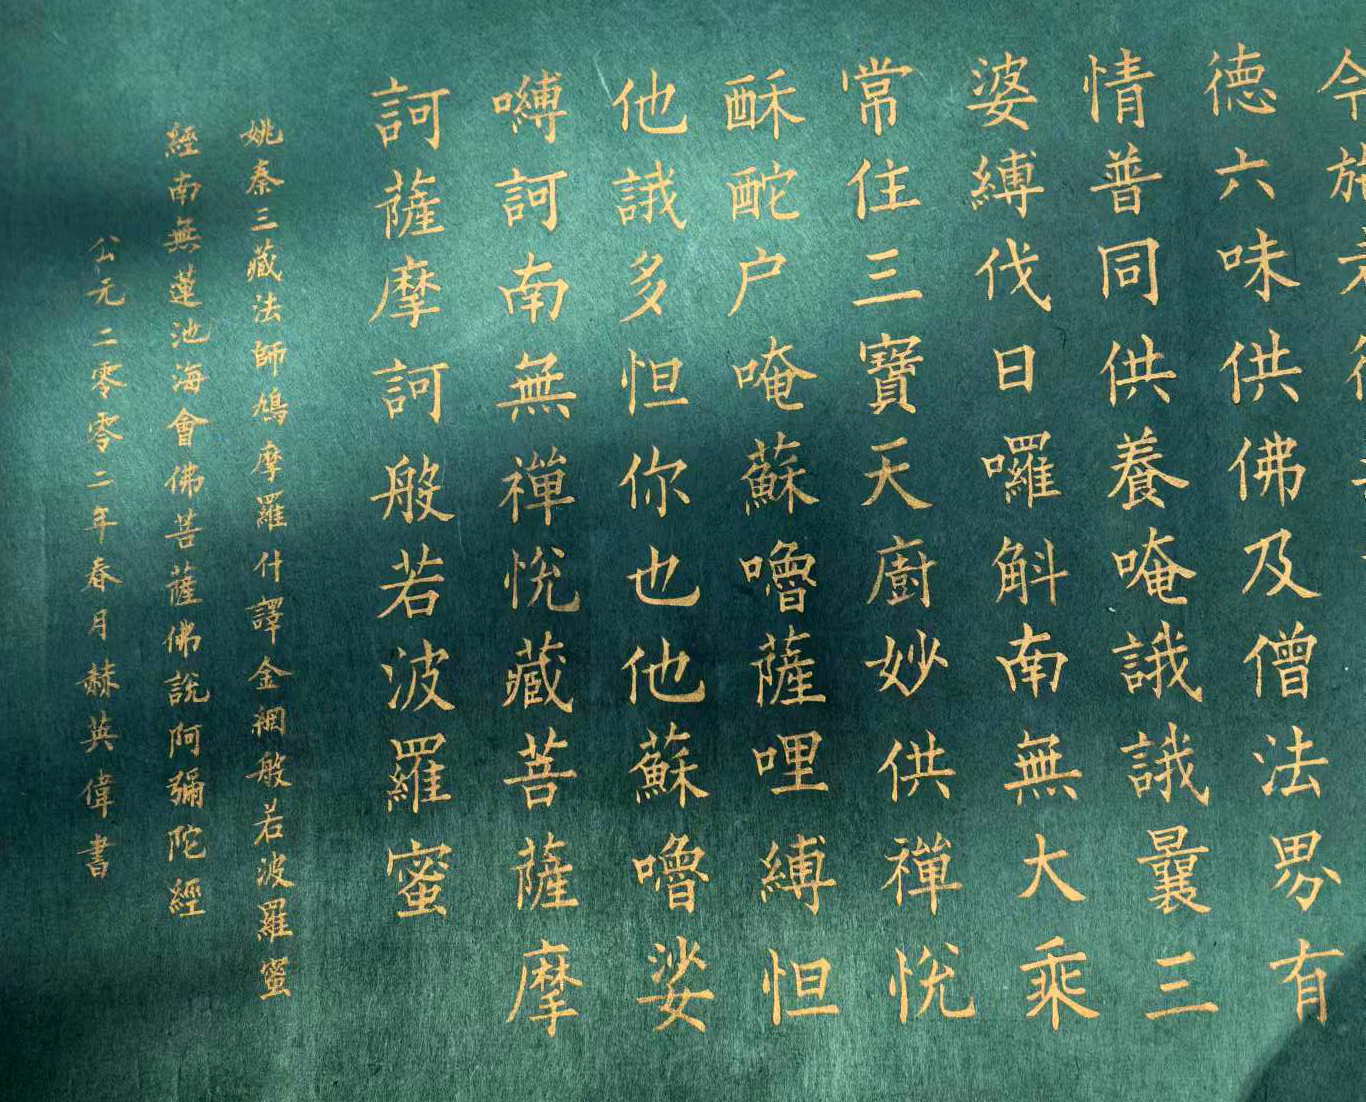 令施
德六味供佛及僧法界有
情普同供養唵誐誐曩三
婆縛伐日囉斛南無大乘
常住三寶天廚妙供禪悅
酥酡户唵蘇嚕薩哩縛怛
他誐多怛你也他蘇嚕娑
嚩訶南無禪悅藏菩薩摩
訶薩摩訶般若波羅蜜
姚秦三藏法師鳩摩羅什譯金網般若波羅蜜
經南無蓮池海會佛菩薩佛說阿彌陀經
公元二零零二年春月赫英偉書